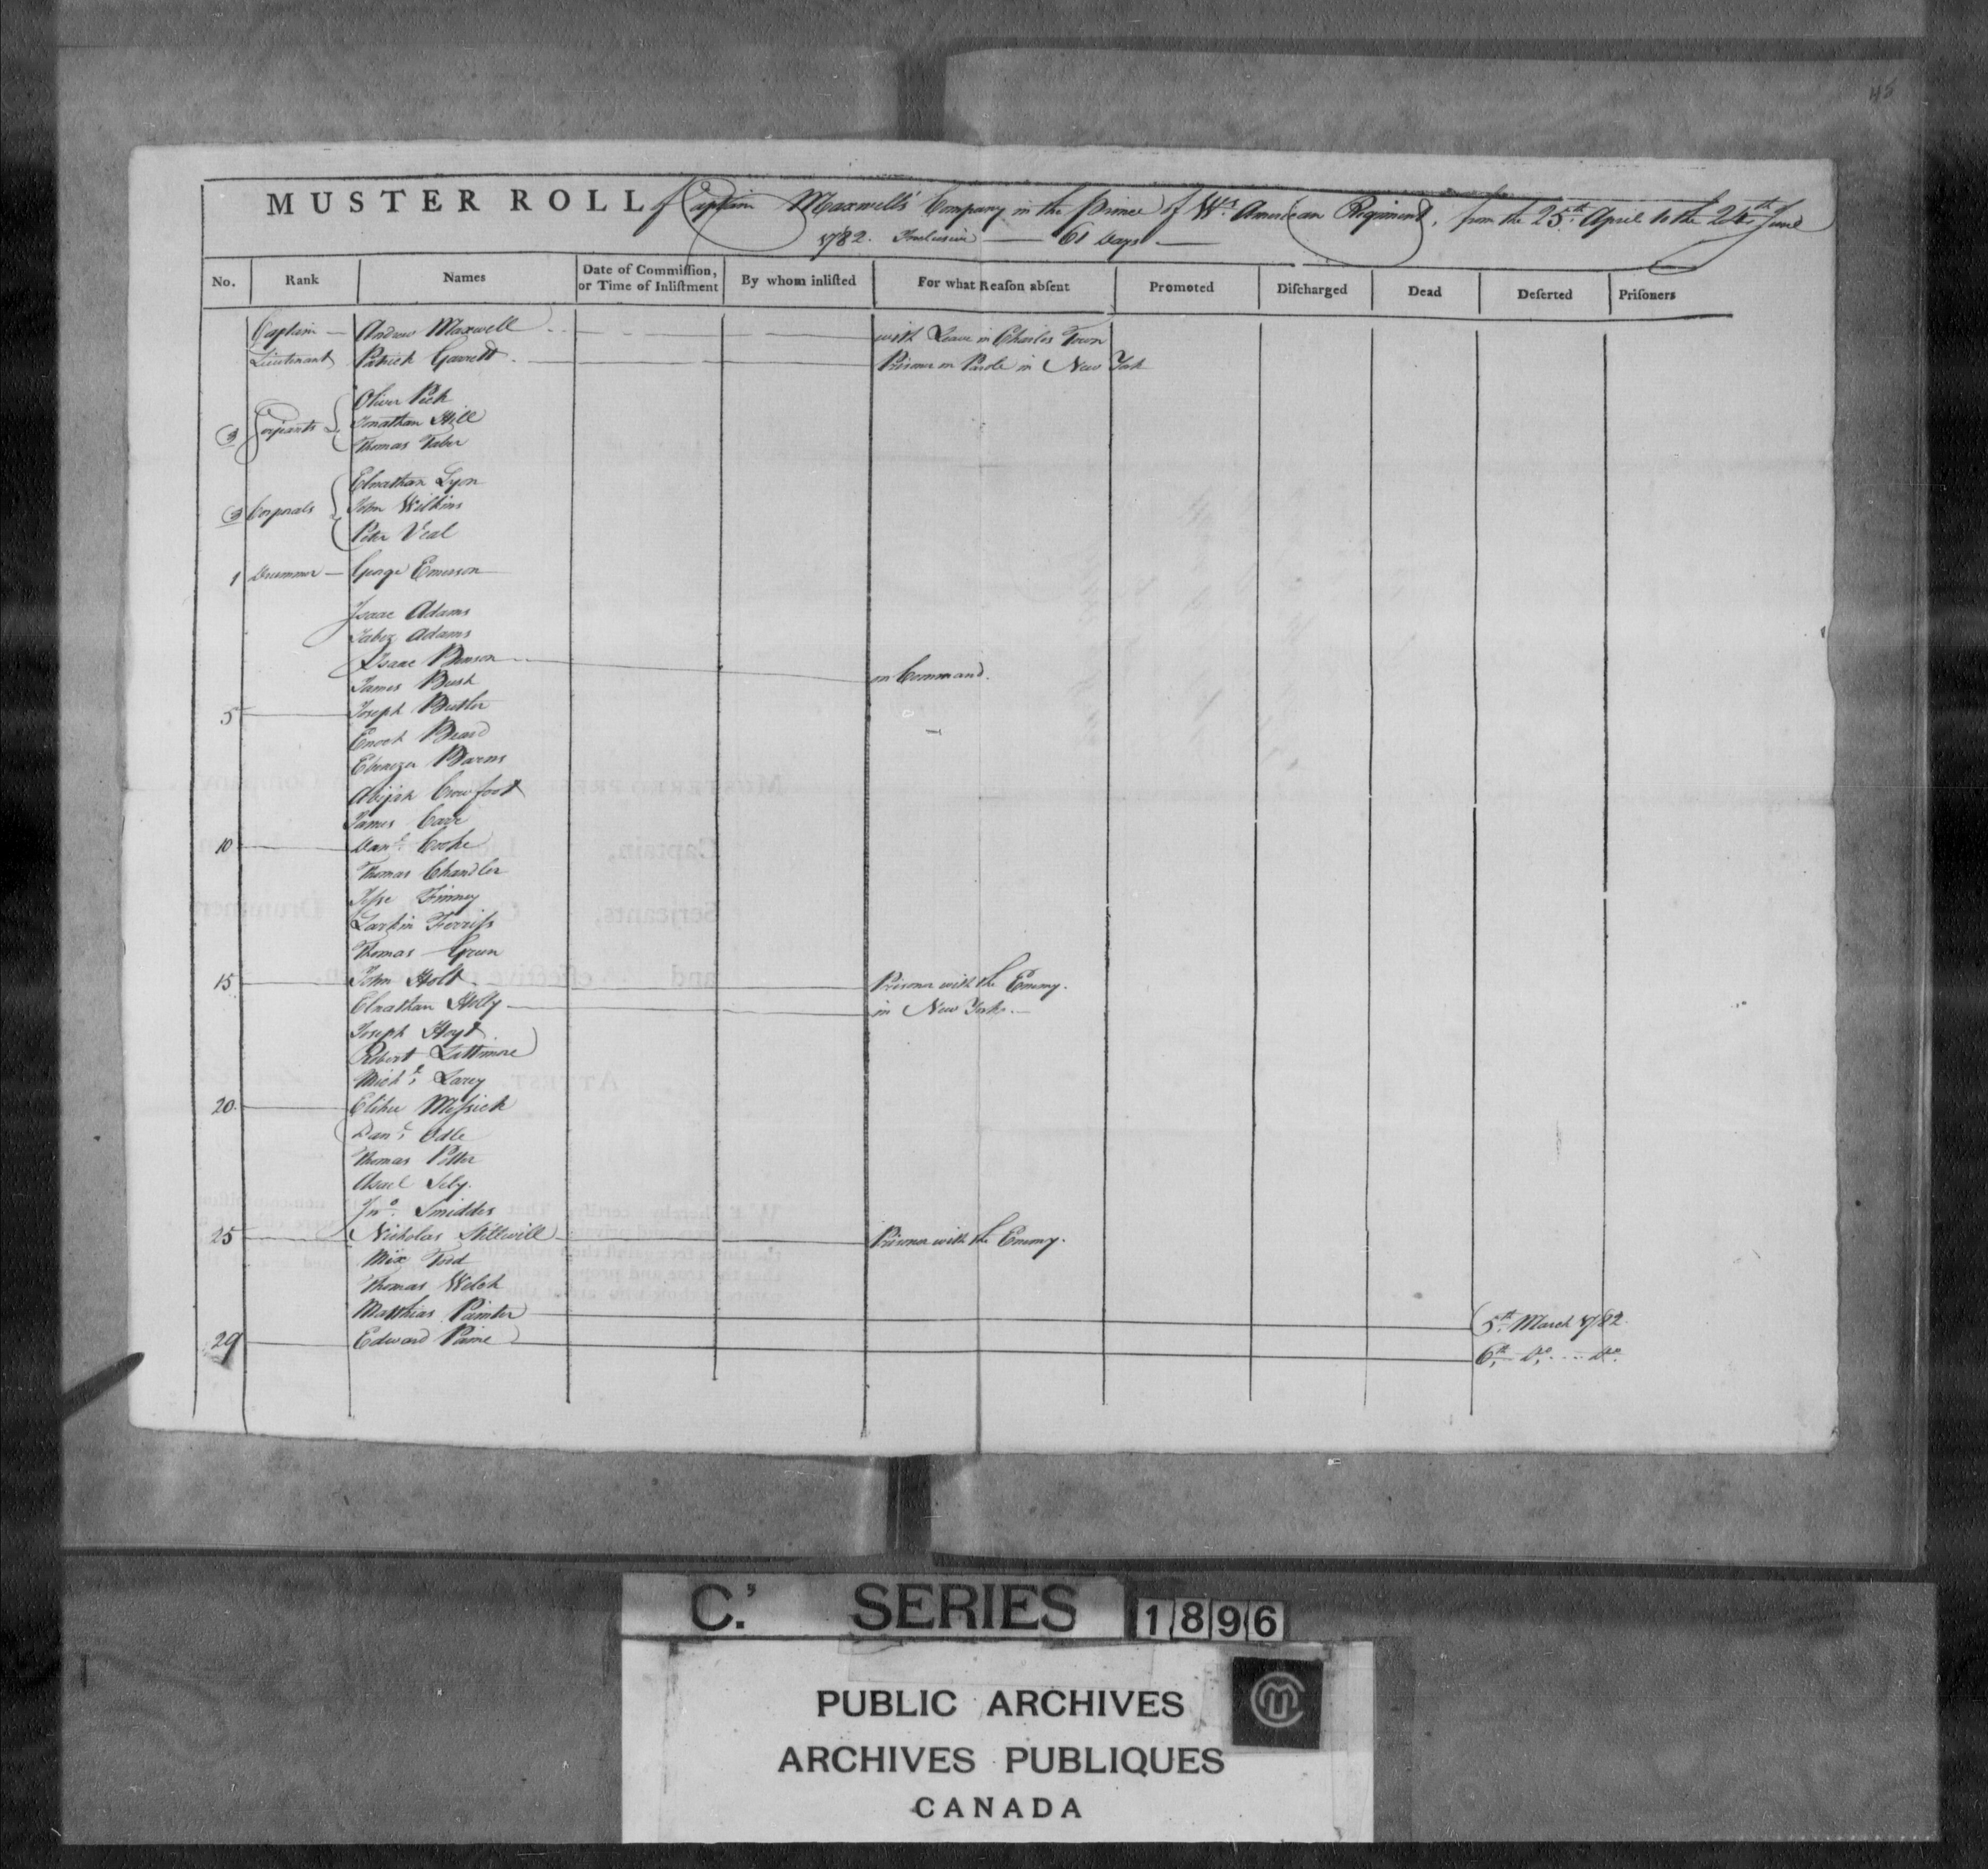 45
MUSTER ROLL of Captain Maxwell's Company in the Prince of Wˢ American Regiment, from the 25th April to the 24th June
1782. Inclusive — 61 Days —
No. Rank Names Date of Commiſſion, or Time of Inliſtment By whom inliſted For what Reaſon abſent Promoted Diſcharged Dead Deſerted Priſoners
Captain — Andrew Maxwell with Leave in Charles Town
Lieutenant Patrick Garrett Prisoner on Parole in New York
3 Serjeants Oliver Peck
Jonathan Hill
Thomas Taber
3 Corporals Elnathan Lyon
John Wilkins
Peter Veal
1 Drummer — George Emerson
Isaac Adams
Jabez Adams
Isaac Benson on Command.
James Bush
5 Joseph Butler
Enoch Beard
Ebenezer Barns
Abijah Crowfoot
James Carr
10 Danˡ. Cooke
Thomas Chandler
Jeſse Finney
Larkin Ferriſs
Thomas Green
15 John Holt Prisoner with the Enemy.
Elnathan Holly in New York.
Joseph Hoyt
Robert Lattimore
Michˡ. Larey
20 Elihu Meſsick
Danˡ. Odle
Thomas Potter
Asael Sely.
Jnº. Smiddis
25 Nicholas Stillwill Prisoner with the Enemy.
Mix Tod
Thomas Welch
Matthias Painter 5th March 1782.
29 Edward Paine 6th. Dº. Dº.
C.' SERIES 1896
PUBLIC ARCHIVES
ARCHIVES PUBLIQUES
CANADA